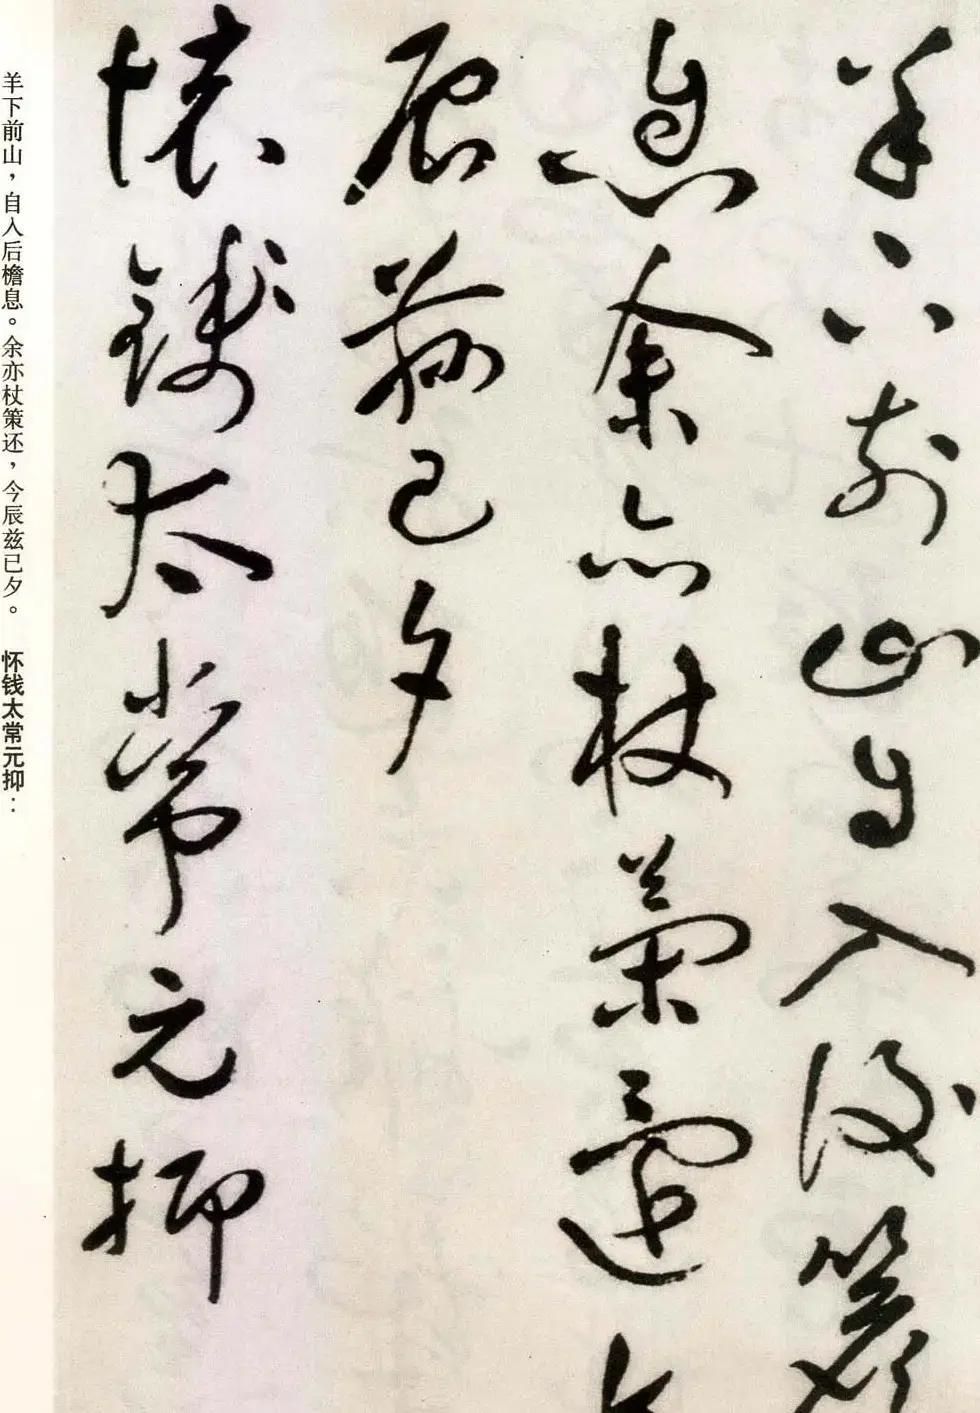 羊下前山自入後簷
息余亦杖策還今
辰茲已夕
懷錢太常元抑
羊下前山，自入后檐息。余亦杖策还，今辰兹已夕。 怀钱太常元抑：